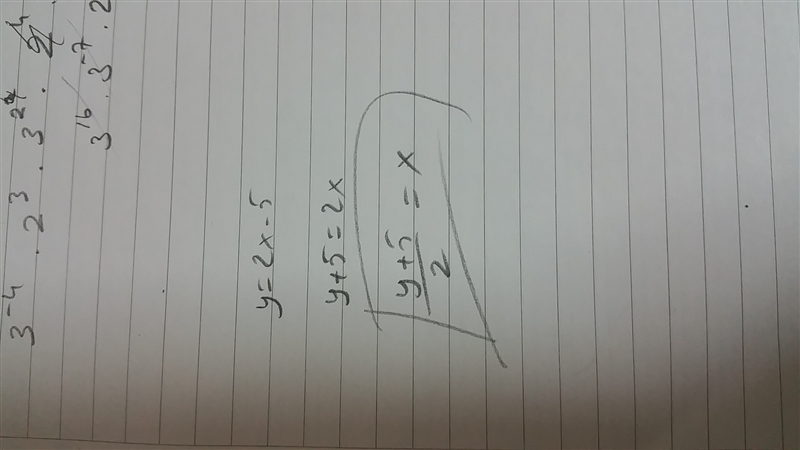 3^-4 · 2^3 · 3^2 ·
3^16 · 3^-7 · 2
y = 2x - 5
y + 5 = 2x
(y + 5)/2 = x